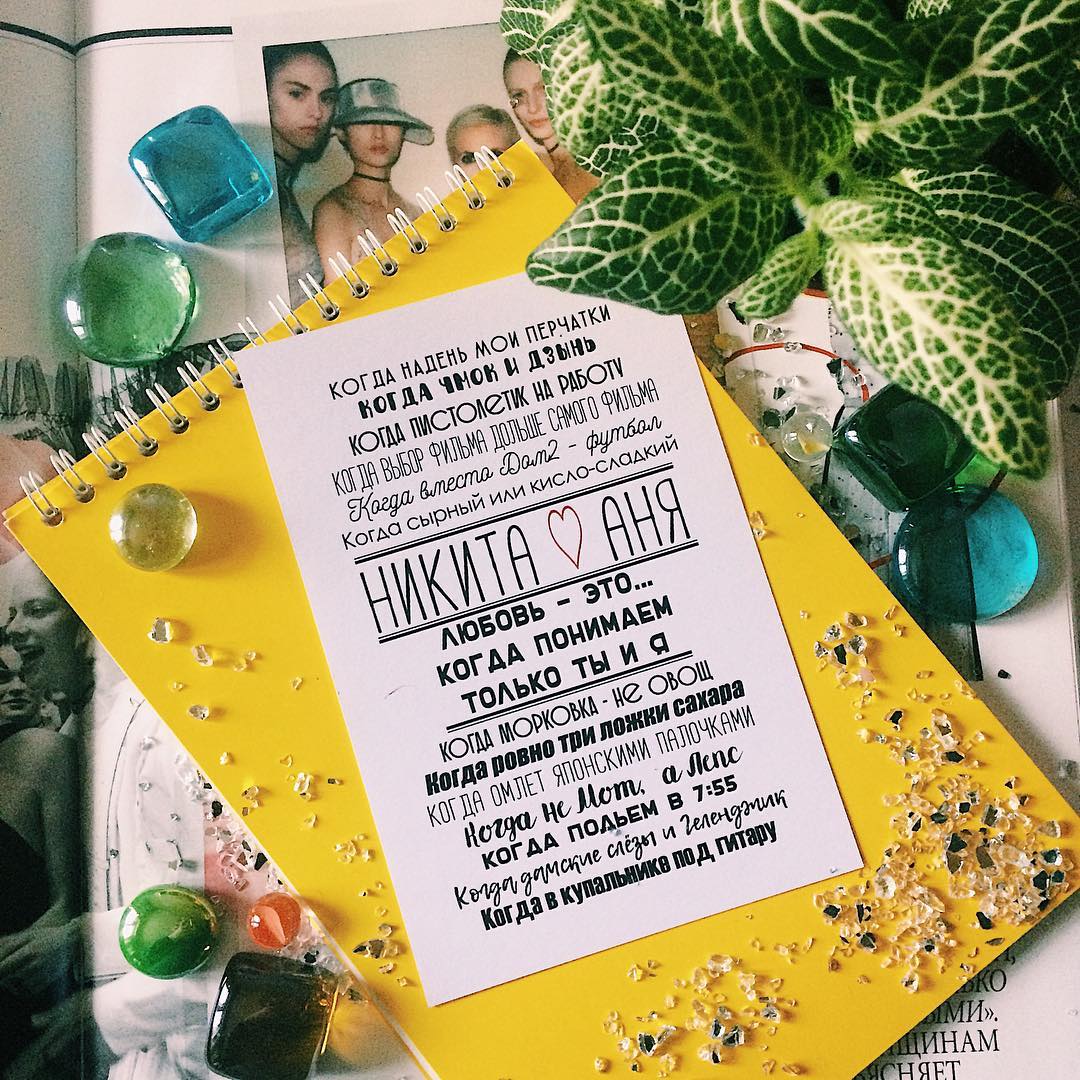 КОГДА НАДЕНЬ МОИ ПЕРЧАТКИ
КОГДА ЧМОК И ДЗЫНЬ
КОГДА ПИСТОЛЕТИК НА РАБОТУ
КОГДА ВЫБОР ФИЛЬМА ДОЛЬШЕ САМОГО ФИЛЬМА
Когда вместо Дом2 - футбол
Когда сырный или кисло-сладкий
НИКИТА ♡ АНЯ
ЛЮБОВЬ - ЭТО...
КОГДА ПОНИМАЕМ
ТОЛЬКО ТЫ И Я
КОГДА МОРКОВКА - НЕ ОВОЩ
Когда ровно три ложки сахара
КОГДА ОМЛЕТ ЯПОНСКИМИ ПАЛОЧКАМИ
Когда не Мот, а Лепс
КОГДА ПОДЬЕМ В 7:55
Когда дамские слёзы и Геленджик
Когда в купальнике под гитару